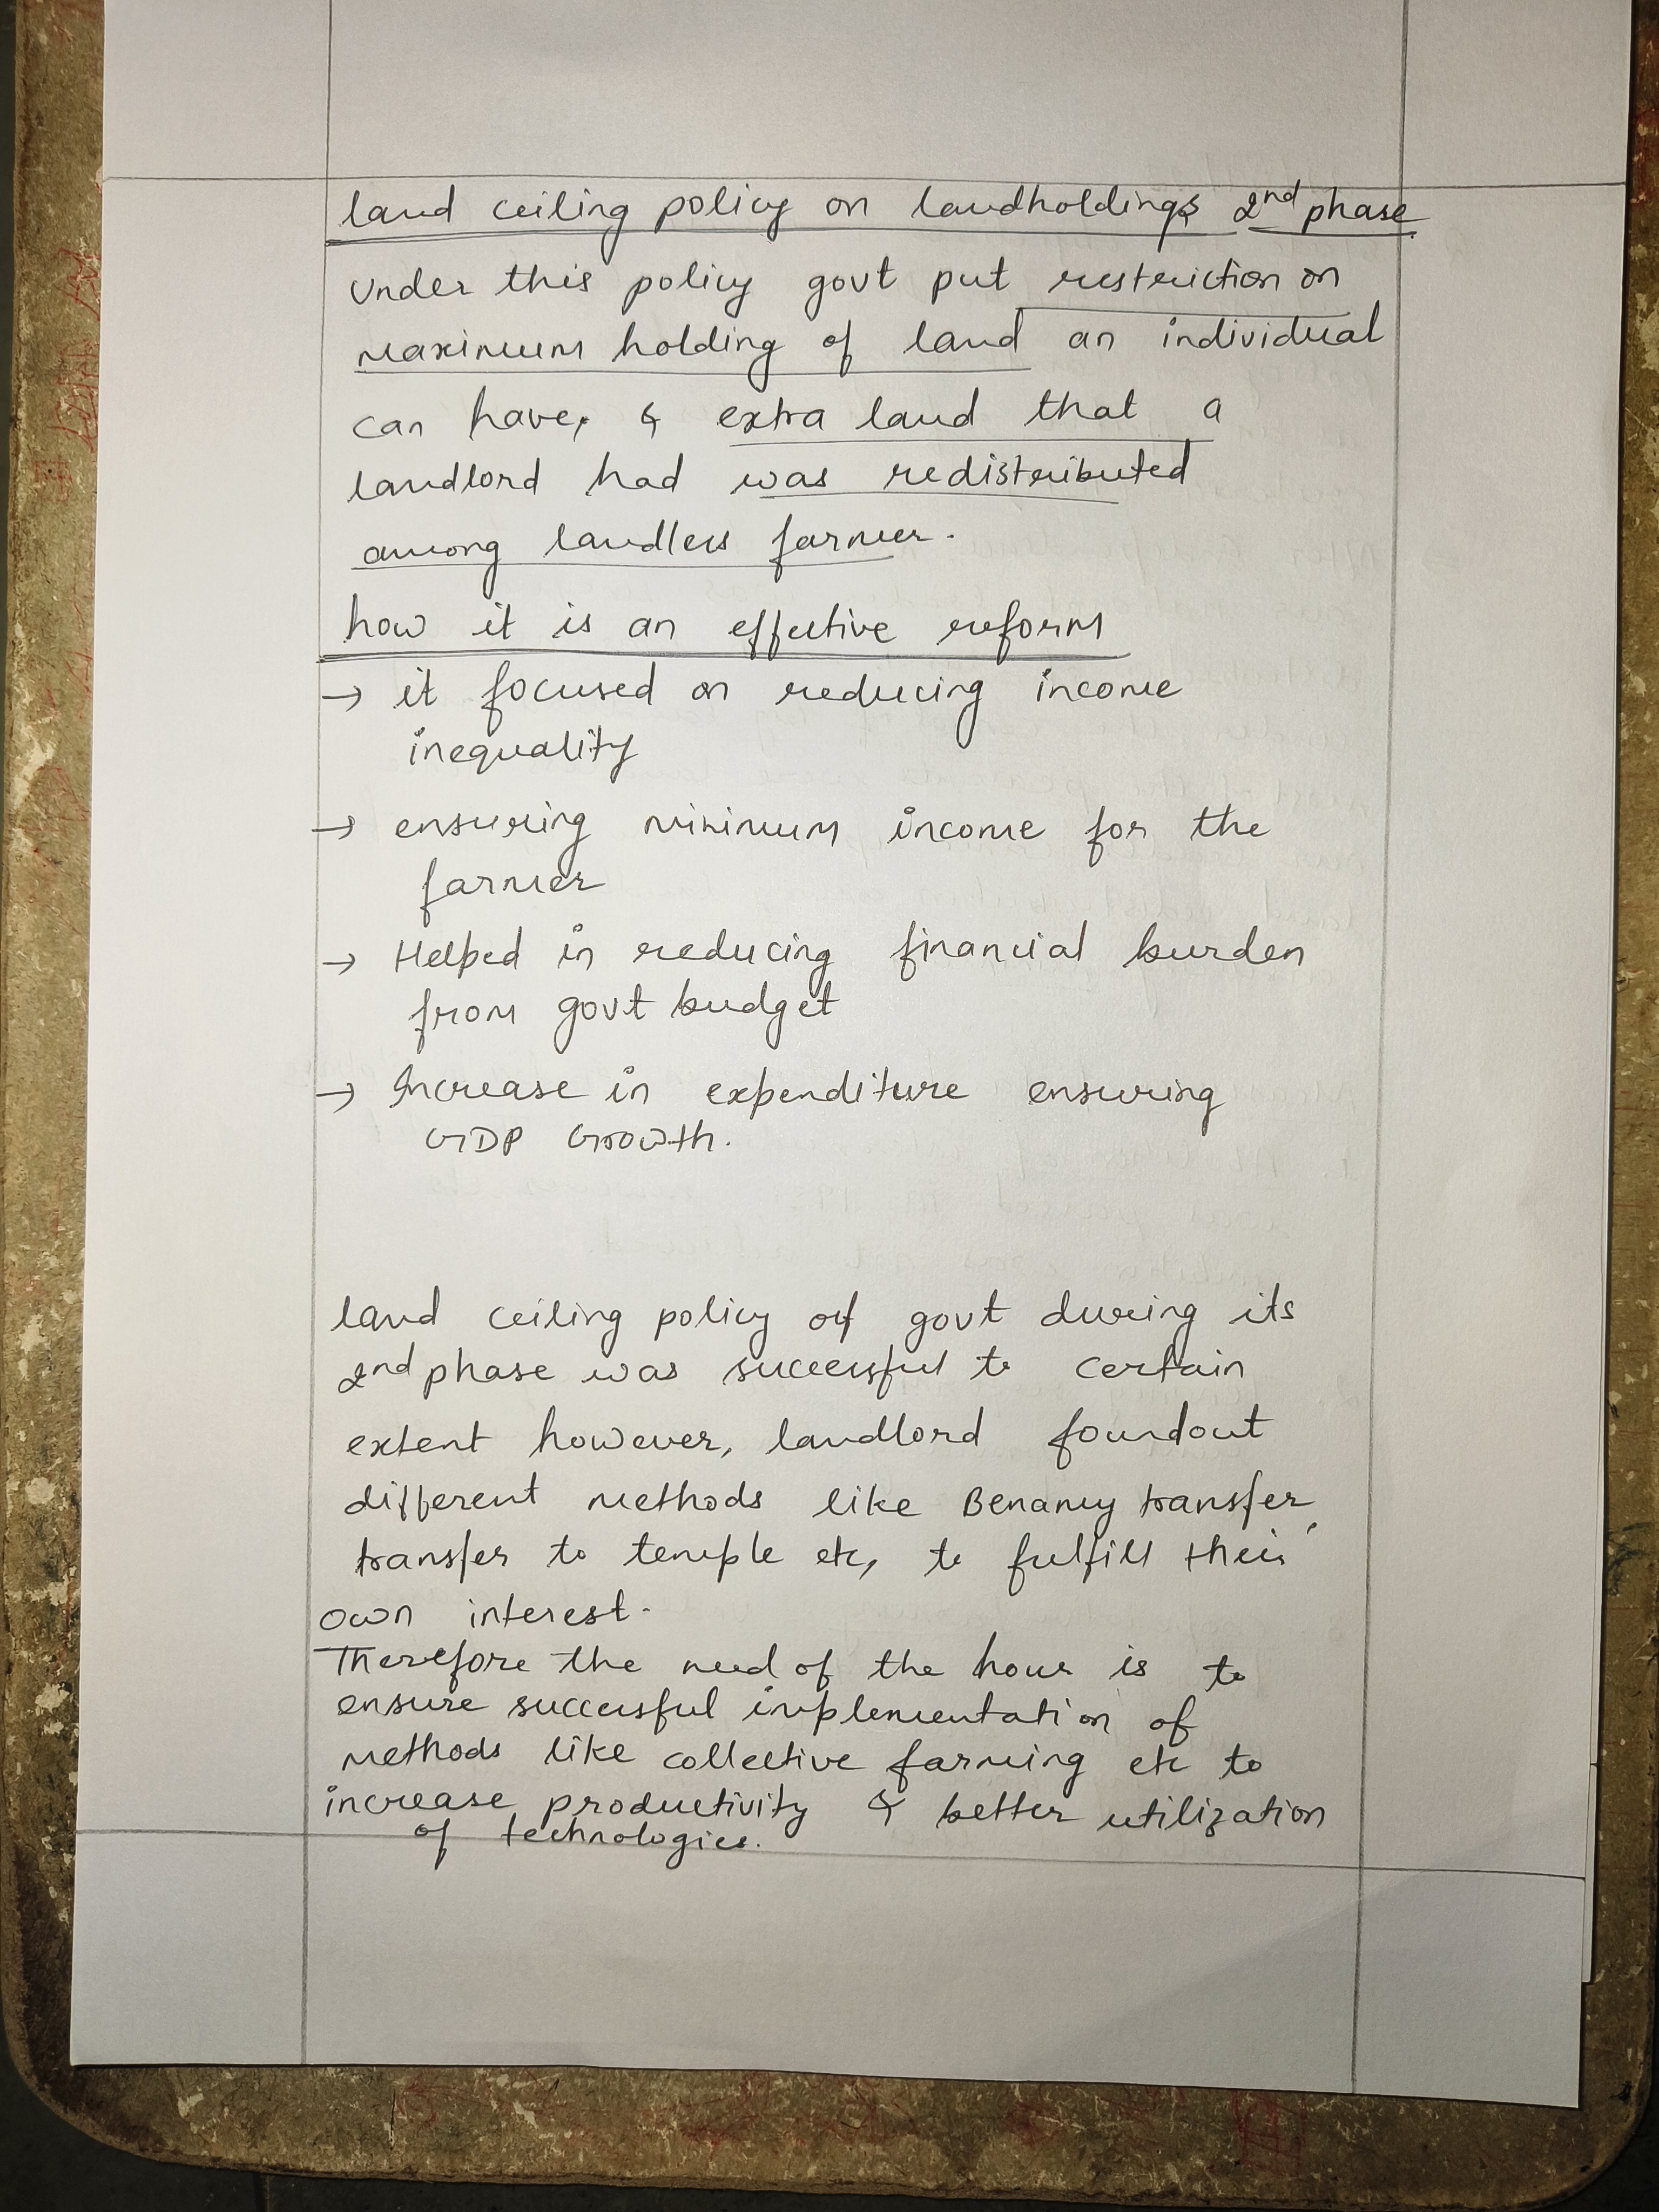 land ceiling policy on landholdings 2nd phase
Under this policy govt put restriction on
maximum holding of land an individual
can have, & extra land that a
landlord had was redistributed
among landless farmer.
how it is an effective reform
→ it focused on reducing income
inequality
→ ensuring minimum income for the
farmer
→ Helped in reducing financial burden
from govt budget
→ Increase in expenditure ensuring
GDP Growth.
land ceiling policy of govt during its
2nd phase was successful to certain
extent however, landlord foundout
different methods like Benamy transfer,
transfer to temple etc, to fulfill their
own interest.
Therefore the need of the hour is to
ensure successful implementation of
methods like collective farming etc to
increase productivity & better utilization
of technologies.